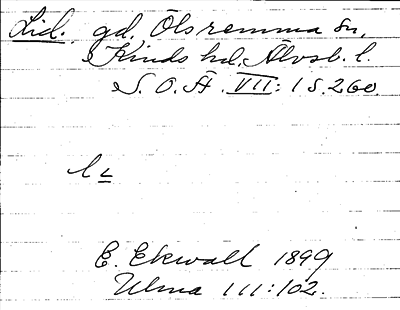 Lid. gd. Ölsremma sn,
Kinds hd. Älvsb. l.
S. O. Ä. VII: 1 S. 260.
E. Ekwall 1899
Ulma 111:102.